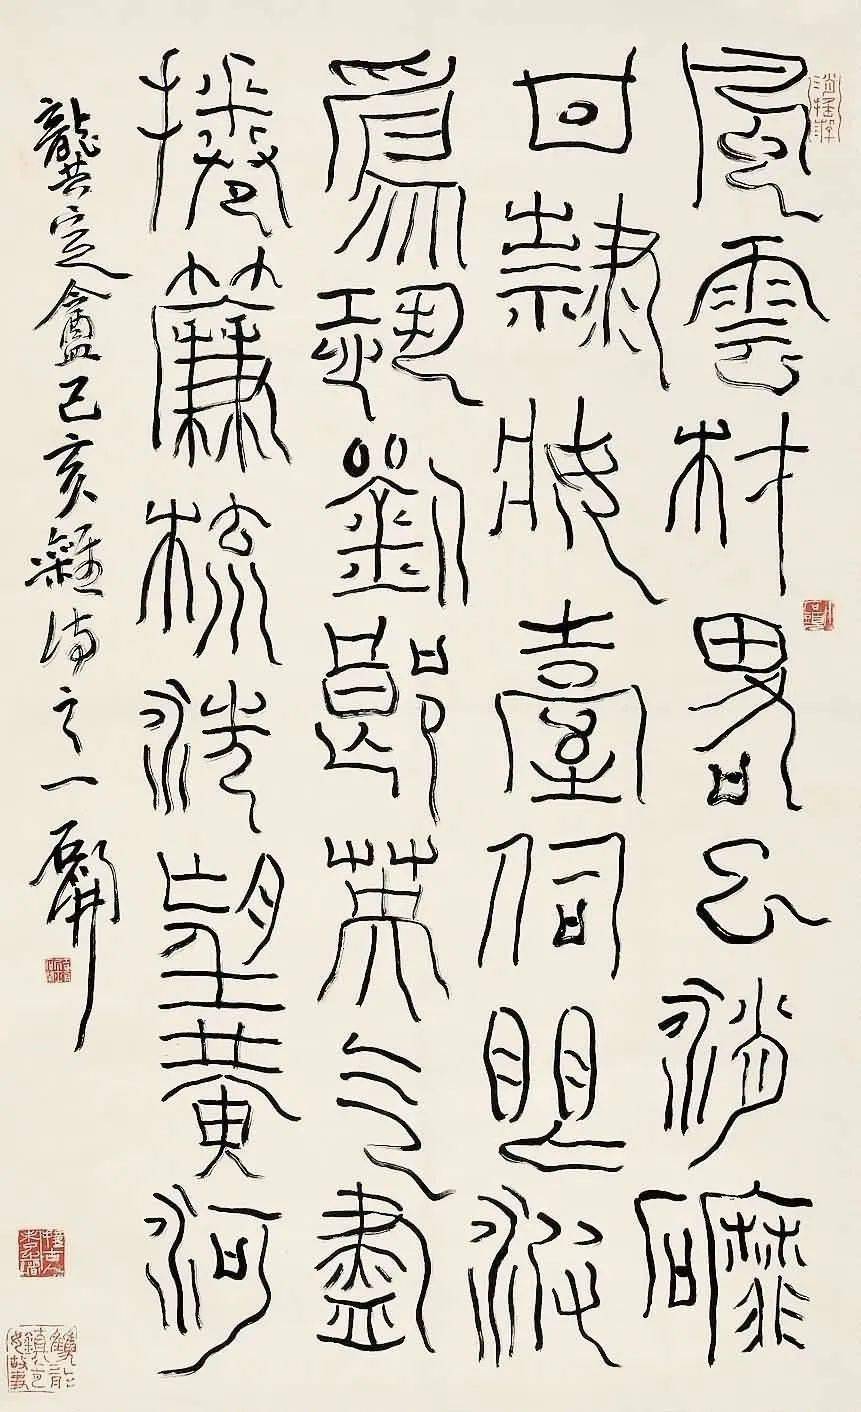 風雲材畧已消磨
甘隸妝臺伺眼波
爲恐劉郎英气盡
捲簾梳洗望黃河
龔定盦己亥雜詩之一 石開